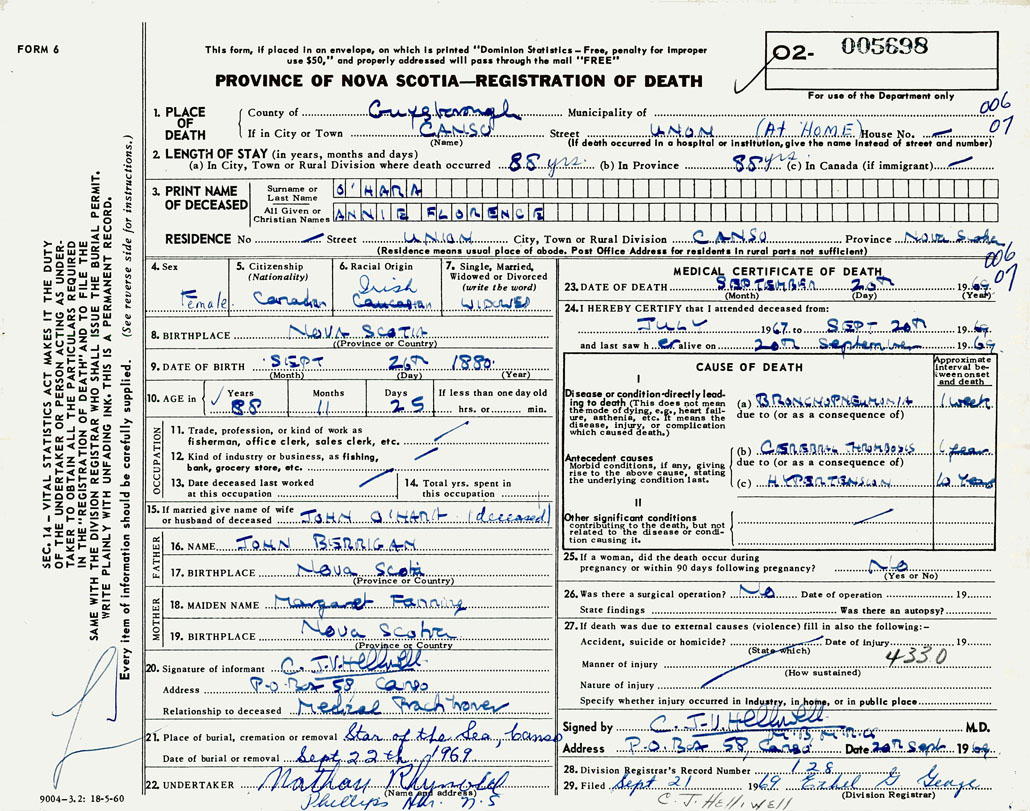 FORM 6
This form, if placed in an envelope, on which is printed "Dominion Statistics – Free, penalty for improper
use $50," and properly addressed will pass through the mail "FREE"
PROVINCE OF NOVA SCOTIA—REGISTRATION OF DEATH
02- 005698
For use of the Department only
006
07
1. PLACE OF DEATH
County of Guysborough Municipality of
If in City or Town CANSO Street UNION (At HOME) House No. —
(Name) (If death occurred in a hospital or institution, give the name instead of street and number)
2. LENGTH OF STAY (in years, months and days)
(a) In City, Town or Rural Division where death occurred 88 yrs. (b) In Province 88 yrs (c) In Canada (if immigrant) —
3. PRINT NAME OF DECEASED
Surname or Last Name O'HARA
All Given or Christian Names ANNIE FLORENCE
RESIDENCE No — Street UNION City, Town or Rural Division CANSO Province Nova Scotia
(Residence means usual place of abode. Post Office Address for residents in rural parts not sufficient)
006
07
4. Sex Female
5. Citizenship (Nationality) Canadian
6. Racial Origin Irish Caucasian
7. Single, Married, Widowed or Divorced (write the word) WIDOWED
8. BIRTHPLACE NOVA SCOTIA
(Province or Country)
9. DATE OF BIRTH SEPT 26th 1880
(Month) (Day) (Year)
10. AGE in Years 88 Months 11 Days 25 If less than one day old hrs. or min.
OCCUPATION
11. Trade, profession, or kind of work as
fisherman, office clerk, sales clerk, etc. —
12. Kind of industry or business, as fishing,
bank, grocery store, etc. —
13. Date deceased last worked
at this occupation —
14. Total yrs. spent in
this occupation
15. If married give name of wife
or husband of deceased JOHN O'HARA (deceased)
FATHER
16. NAME JOHN BERRIGAN
17. BIRTHPLACE Nova Scotia
(Province or Country)
MOTHER
18. MAIDEN NAME Margaret Fanning
19. BIRTHPLACE Nova Scotia
(Province or Country
20. Signature of informant C. J.V. Helliwell
Address P.O. Box 58 Canso
Relationship to deceased Medical Practitioner
21. Place of burial, cremation or removal Star of the Sea, Canso
Date of burial or removal Sept 22th 1969
22. UNDERTAKER Nathan
(Name and address)
N.S
MEDICAL CERTIFICATE OF DEATH
23. DATE OF DEATH SEPTEMBER 20th 1969
(Month) (Day) (Year)
24. I HEREBY CERTIFY that I attended deceased from:
JULY 1967 to SEPT 20th 1969
and last saw her alive on 20th September 1969
CAUSE OF DEATH
Approximate interval between onset and death
I
Disease or condition directly leading to death (This does not mean the mode of dying, e.g., heart failure, asthenia, etc. It means the disease, injury, or complication which caused death.)
(a) BRONCHOPNEUMONIA 1 week
due to (or as a consequence of)
Antecedent causes
Morbid conditions, if any, giving rise to the above cause, stating the underlying condition last.
(b) CEREBRAL THROMBOSIS 1 year
due to (or as a consequence of)
(c) HYPERTENSION 10 Years
II
Other significant conditions
contributing to the death, but not related to the disease or condition causing it. —
25. If a woman, did the death occur during
pregnancy or within 90 days following pregnancy? No
(Yes or No)
26. Was there a surgical operation? No Date of operation 19
State findings Was there an autopsy?
27. If death was due to external causes (violence) fill in also the following:-
Accident, suicide or homicide? Date of injury 19
(State which)
4330
Manner of injury
(How sustained)
Nature of injury
Specify whether injury occurred in industry, in home, or in public place
Signed by C. J.V. Helliwell M.D.
M.B. M.R.A
Address P.O. Box 58, Canso Date 20th Sept 1969
28. Division Registrar's Record Number 128
29. Filed Sept 21 1969 Ethel G George
(Division Registrar)
C. J. HELLIWELL
9004-3.2: 18-5-60
SEC. 14 – VITAL STATISTICS ACT MAKES IT THE DUTY
OF THE UNDERTAKER OR PERSON ACTING AS UNDER-
TAKER TO OBTAIN ALL THE PARTICULARS REQUIRED
IN THE "REGISTRATION OF DEATH" AND TO FILE THE
SAME WITH THE DIVISION REGISTRAR WHO SHALL ISSUE THE BURIAL PERMIT.
WRITE PLAINLY WITH UNFADING INK. THIS IS A PERMANENT RECORD.
Every item of information should be carefully supplied. (See reverse side for instructions.)